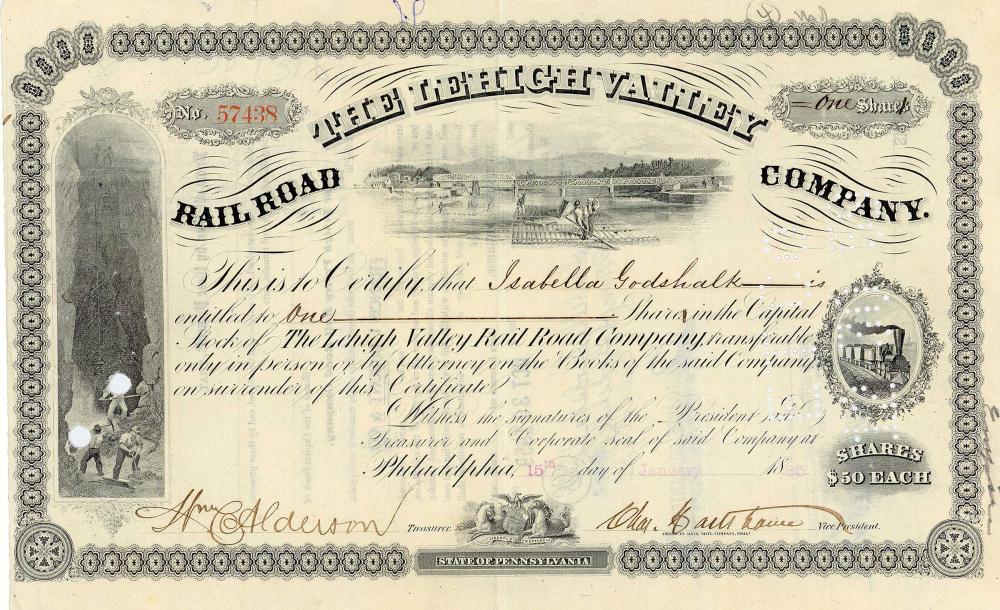 No. 57438
One Share
THE LEHIGH VALLEY
RAIL ROAD COMPANY.
This is to Certify, that Isabella Godshalk is
entitled to One Share in the Capital
Stock of The Lehigh Valley Rail Road Company, transferable
only in person or by Attorney on the Books of the said Company
on surrender of this Certificate.
Witness the signatures of the President and
Treasurer and Corporate Seal of said Company at
Philadelphia, 15th day of January 1885
SHARES
$50 EACH
Wm C Alderson Treasurer. Chas. Hartshorne Vice President.
AMERICAN BANK NOTE COMPANY, PHILA.
STATE OF PENNSYLVANIA